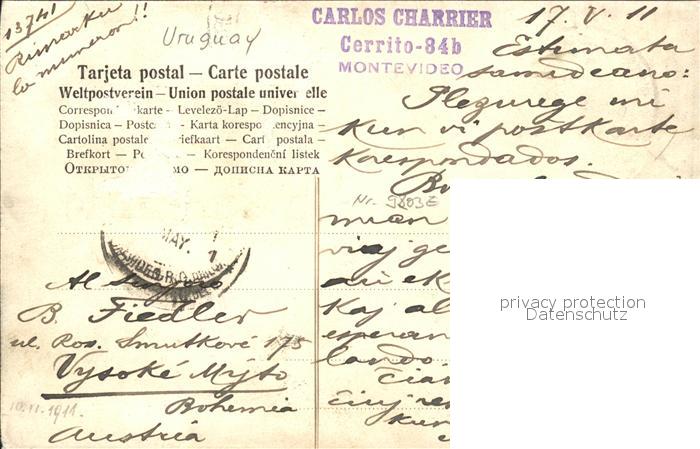 13741
Rimarku
la numeron!!
Uruguay
CARLOS CHARRIER
Cerrito-84b
MONTEVIDEO
17. V. 11
Tarjeta postal — Carte postale
Weltpostverein — Union postale univer elle
Correspon karte — Levelező-Lap — Dopisnice —
Dopisnica — Postc — Karta korespo encyjna —
Cartolina postale riefkaart — Car postala —
Brefkort — Po — Korespondenční listek
ОТКРЫТО МО — ДОПИСНА КАРТА
Estimata
samideano:
Plezurege mi
kun vi postkarte
korespondados.
Nr. 9803E
mian
viaj ge
aŭ ek
Kaj al
esperan
lando.
Ĉian
ĉiuj re
kun
MAY.
Al sinjoro
B. Fiedler
ul. Ros. Smutkové 175
Vysoké Mýto
Bohemia
Austria
10.VI.1911.
privacy protection
Datenschutz